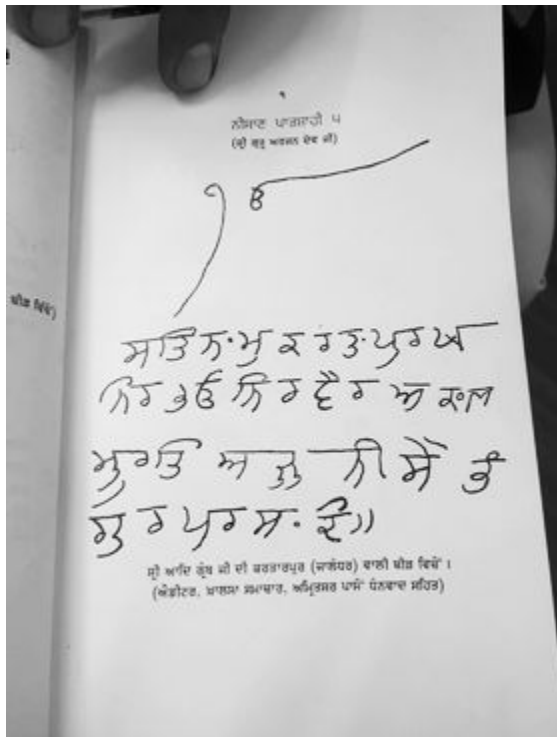 ੧
ਨੀਸਾਣ ਪਾਤਸਾਹੀ ੫
(ਸ੍ਰੀ ਗੁਰੂ ਅਰਜਨ ਦੇਵ ਜੀ)
ੴ
ਸਤਿ ਨਾਮੁ ਕਰਤਾ ਪੁਰਖੁ
ਨਿਰਭਉ ਨਿਰਵੈਰ ਅਕਾਲ
ਮੂਰਤਿ ਅਜੂਨੀ ਸੈਭੰ
ਗੁਰ ਪ੍ਰਸਾਦਿ॥
ਸ੍ਰੀ ਆਦਿ ਗ੍ਰੰਥ ਜੀ ਦੀ ਕਰਤਾਰਪੁਰ (ਜਾਲੰਧਰ) ਵਾਲੀ ਬੀੜ ਵਿਚੋਂ ।
(ਐਡੀਟਰ, ਖ਼ਾਲਸਾ ਸਮਾਚਾਰ, ਅੰਮ੍ਰਿਤਸਰ ਪਾਸੋਂ ਧੰਨਵਾਦ ਸਹਿਤ)
ਬੀੜ ਵਿੱਚੋਂ)